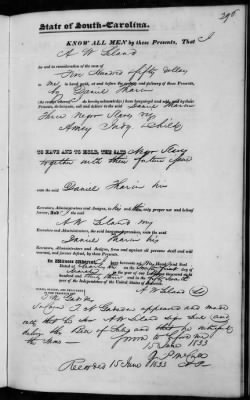 296
State of South-Carolina.
KNOW ALL MEN by these Presents, That I
A W Leland
for and in consideration of the sum of
Hundred fifty dollars
to me in hand paid, at and before the sealing and delivery of these Presents,
by Daniel Tharin
(the receipt whereof do hereby acknowledge) have bargained and sold, and by these
Presents, do bargain, sell and deliver to the said Daniel Tharin
Three Negro Slaves viz
Amey Judy Child
TO HAVE AND TO HOLD, THE SAID Negro Slaves
together with their future issue
unto the said Daniel Tharin his
Executors, Administrators and Assigns, to his and their only proper use and behoof
forever. And I the said
A W Leland my
Executors and Administrators, the said bargained premises, unto the said
Daniel Tharin his
Executors, Administrators and Assigns, from and against all persons shall and will
warrant, and forever defend, by these Presents.
In Witness Whereof, I have hereunto set My Hand and Seal
Dated at Charleston on the first day of
in the year of our Lord one thousand eight
hundred and thirty
A W Leland
SIGNED, SEALED, AND DELIVERED
IN THE PRESENCE OF
T N Gadsden
T N Gadsden appeared and made
oath that he saw A W Leland sign seal and
deliver the Bill of Sale and that he witnessed
the same — Sworn to before me
15 June 1833
Recorded 15 June 1833